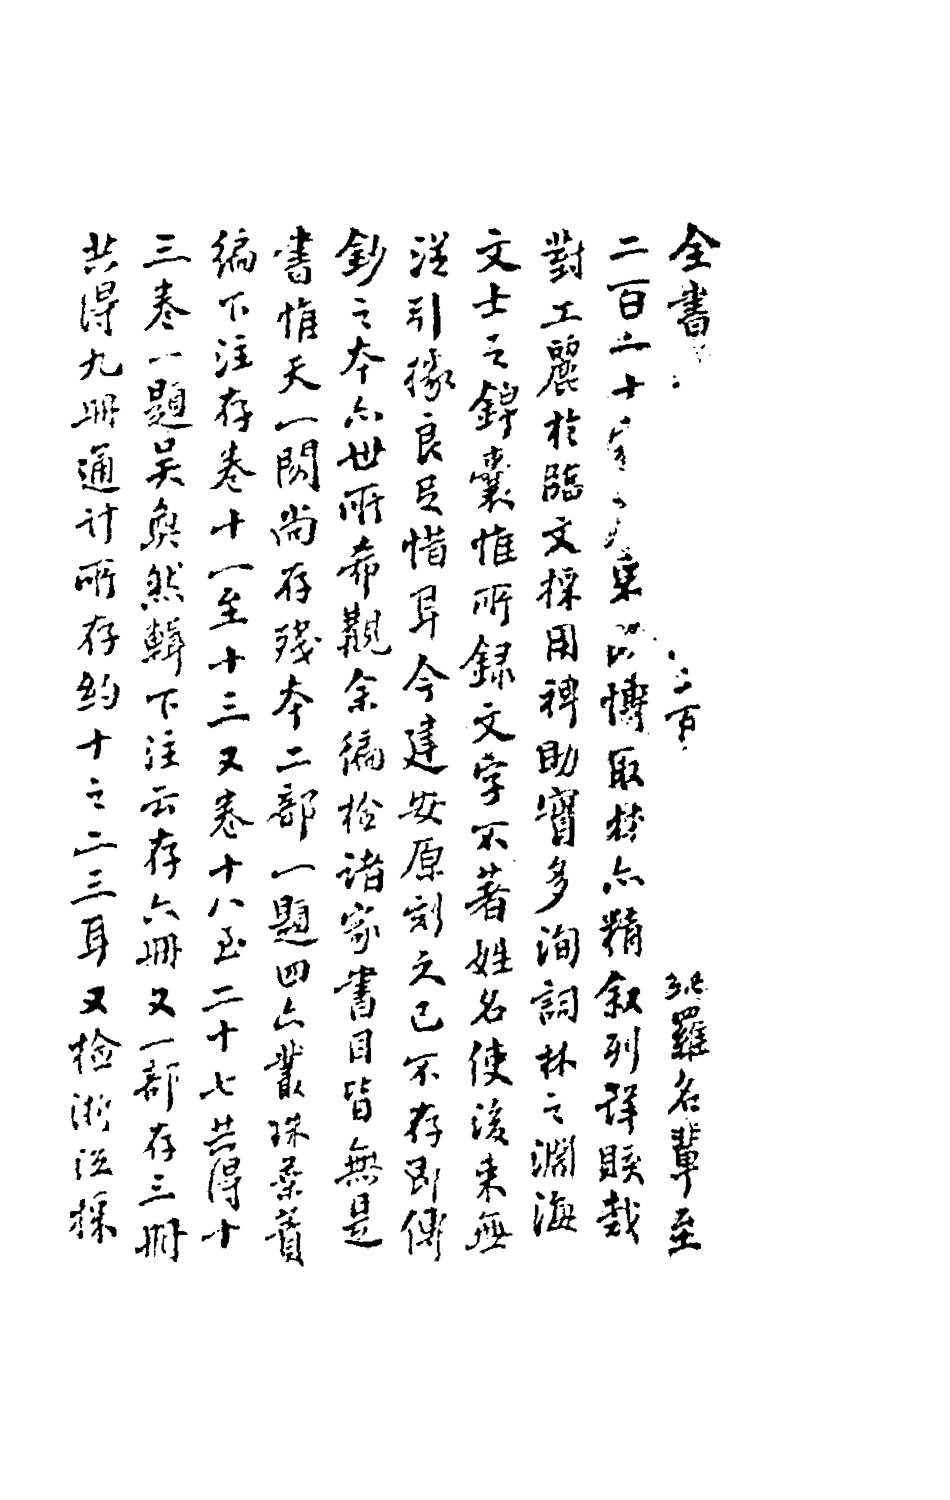 全書二百羅名輩至
二百二十家集以博取材亦精叙列詳贍裁
對工麗於臨文採用裨助實多洵詞林之淵海
文士之錦囊惟所錄文字不著姓名使後來無
從引據良足惜耳今建安原刻久已不存即傳
鈔之本亦世所希觀余徧檢諸家書目皆無是
書惟天一閣尚存殘本二部一題四六叢珠葉蕡
編下注存卷十一至十三又卷十八至二十七共得十
三卷一題吳奐然輯下注云存六冊又一部存三冊
共得九冊通計所存約十之二三耳又檢浙江採